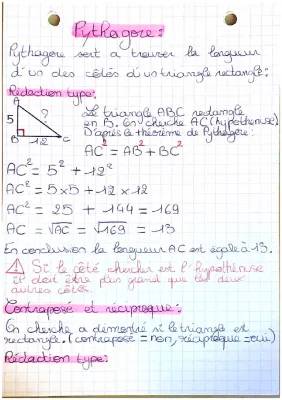 Pythagore:
Pythagore sert a trouver la longueur
d'un des côtés d'un triangle rectangle:
Rédaction type:
A
5
?
B
12
C
Le triangle ABC rectangle
en B. On cherche AC (hypoténuse)
D'après le théorème de Pythagore:
AC² = AB² + BC²
AC² = 5² + 12²
AC² = 5x5 + 12 x 12
AC² = 25 + 144 = 169
AC = √AC = √169 = 13
En conclusion la longueur AC est égale à 13.
! Si le côté chercher est l'hypothénuse
il doit être plus grand que les deux
autres côtés.
Contraposé et réciproque:
On cherche a démontré si le triangle est
rectangle. (contraposé = non, réciproque = oui)
Rédaction type: